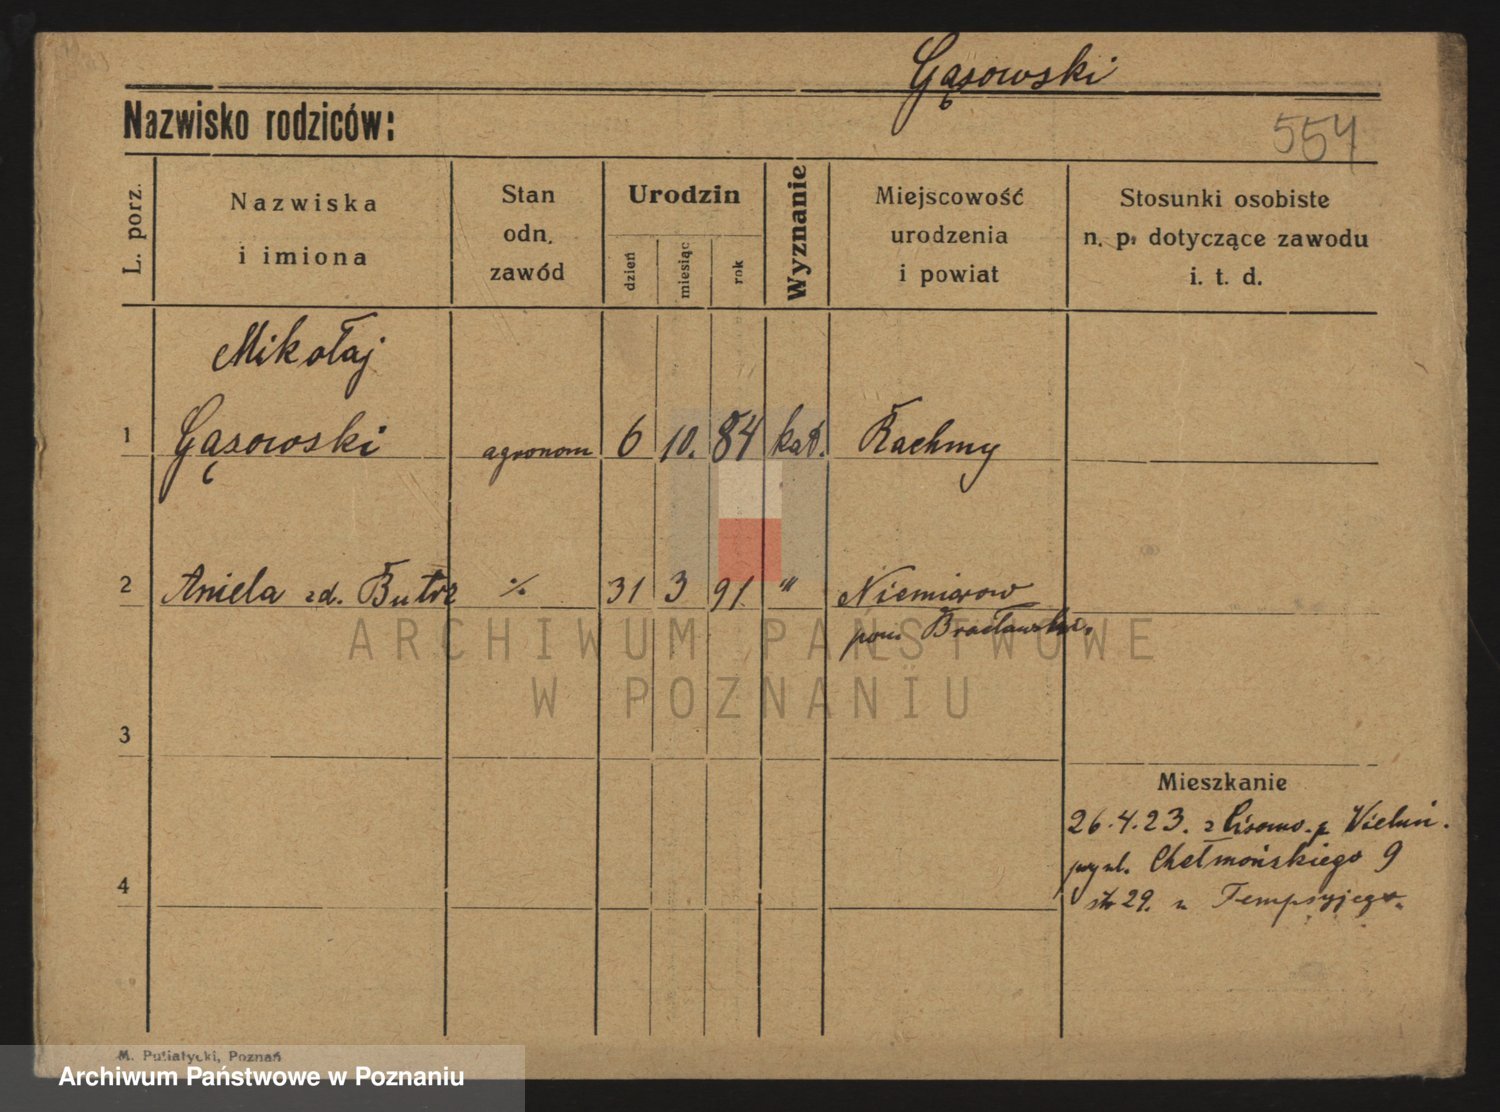 Gąsowski
Nazwisko rodziców:
554
L. porz.
Nazwiska
i imiona
Stan
odn.
zawód
Urodzin
dzień
miesiąc
rok
Wyznanie
Miejscowość
urodzenia
i powiat
Stosunki osobiste
n. p. dotyczące zawodu
i. t. d.
Mikołaj
1 Gąsowski agronom 6 10. 84 kat. Rachny
2 Aniela zd. Butrz % 31 3 91. " Niemirow
pow. Bracławski.
ARCHIWUM PAŃSTWOWE
W POZNANIU
3
Mieszkanie
26.4.23. z p. Wieluń.
Chełmońskiego 9
4
29. u
M. Putiatycki, Poznań
Archiwum Państwowe w Poznaniu